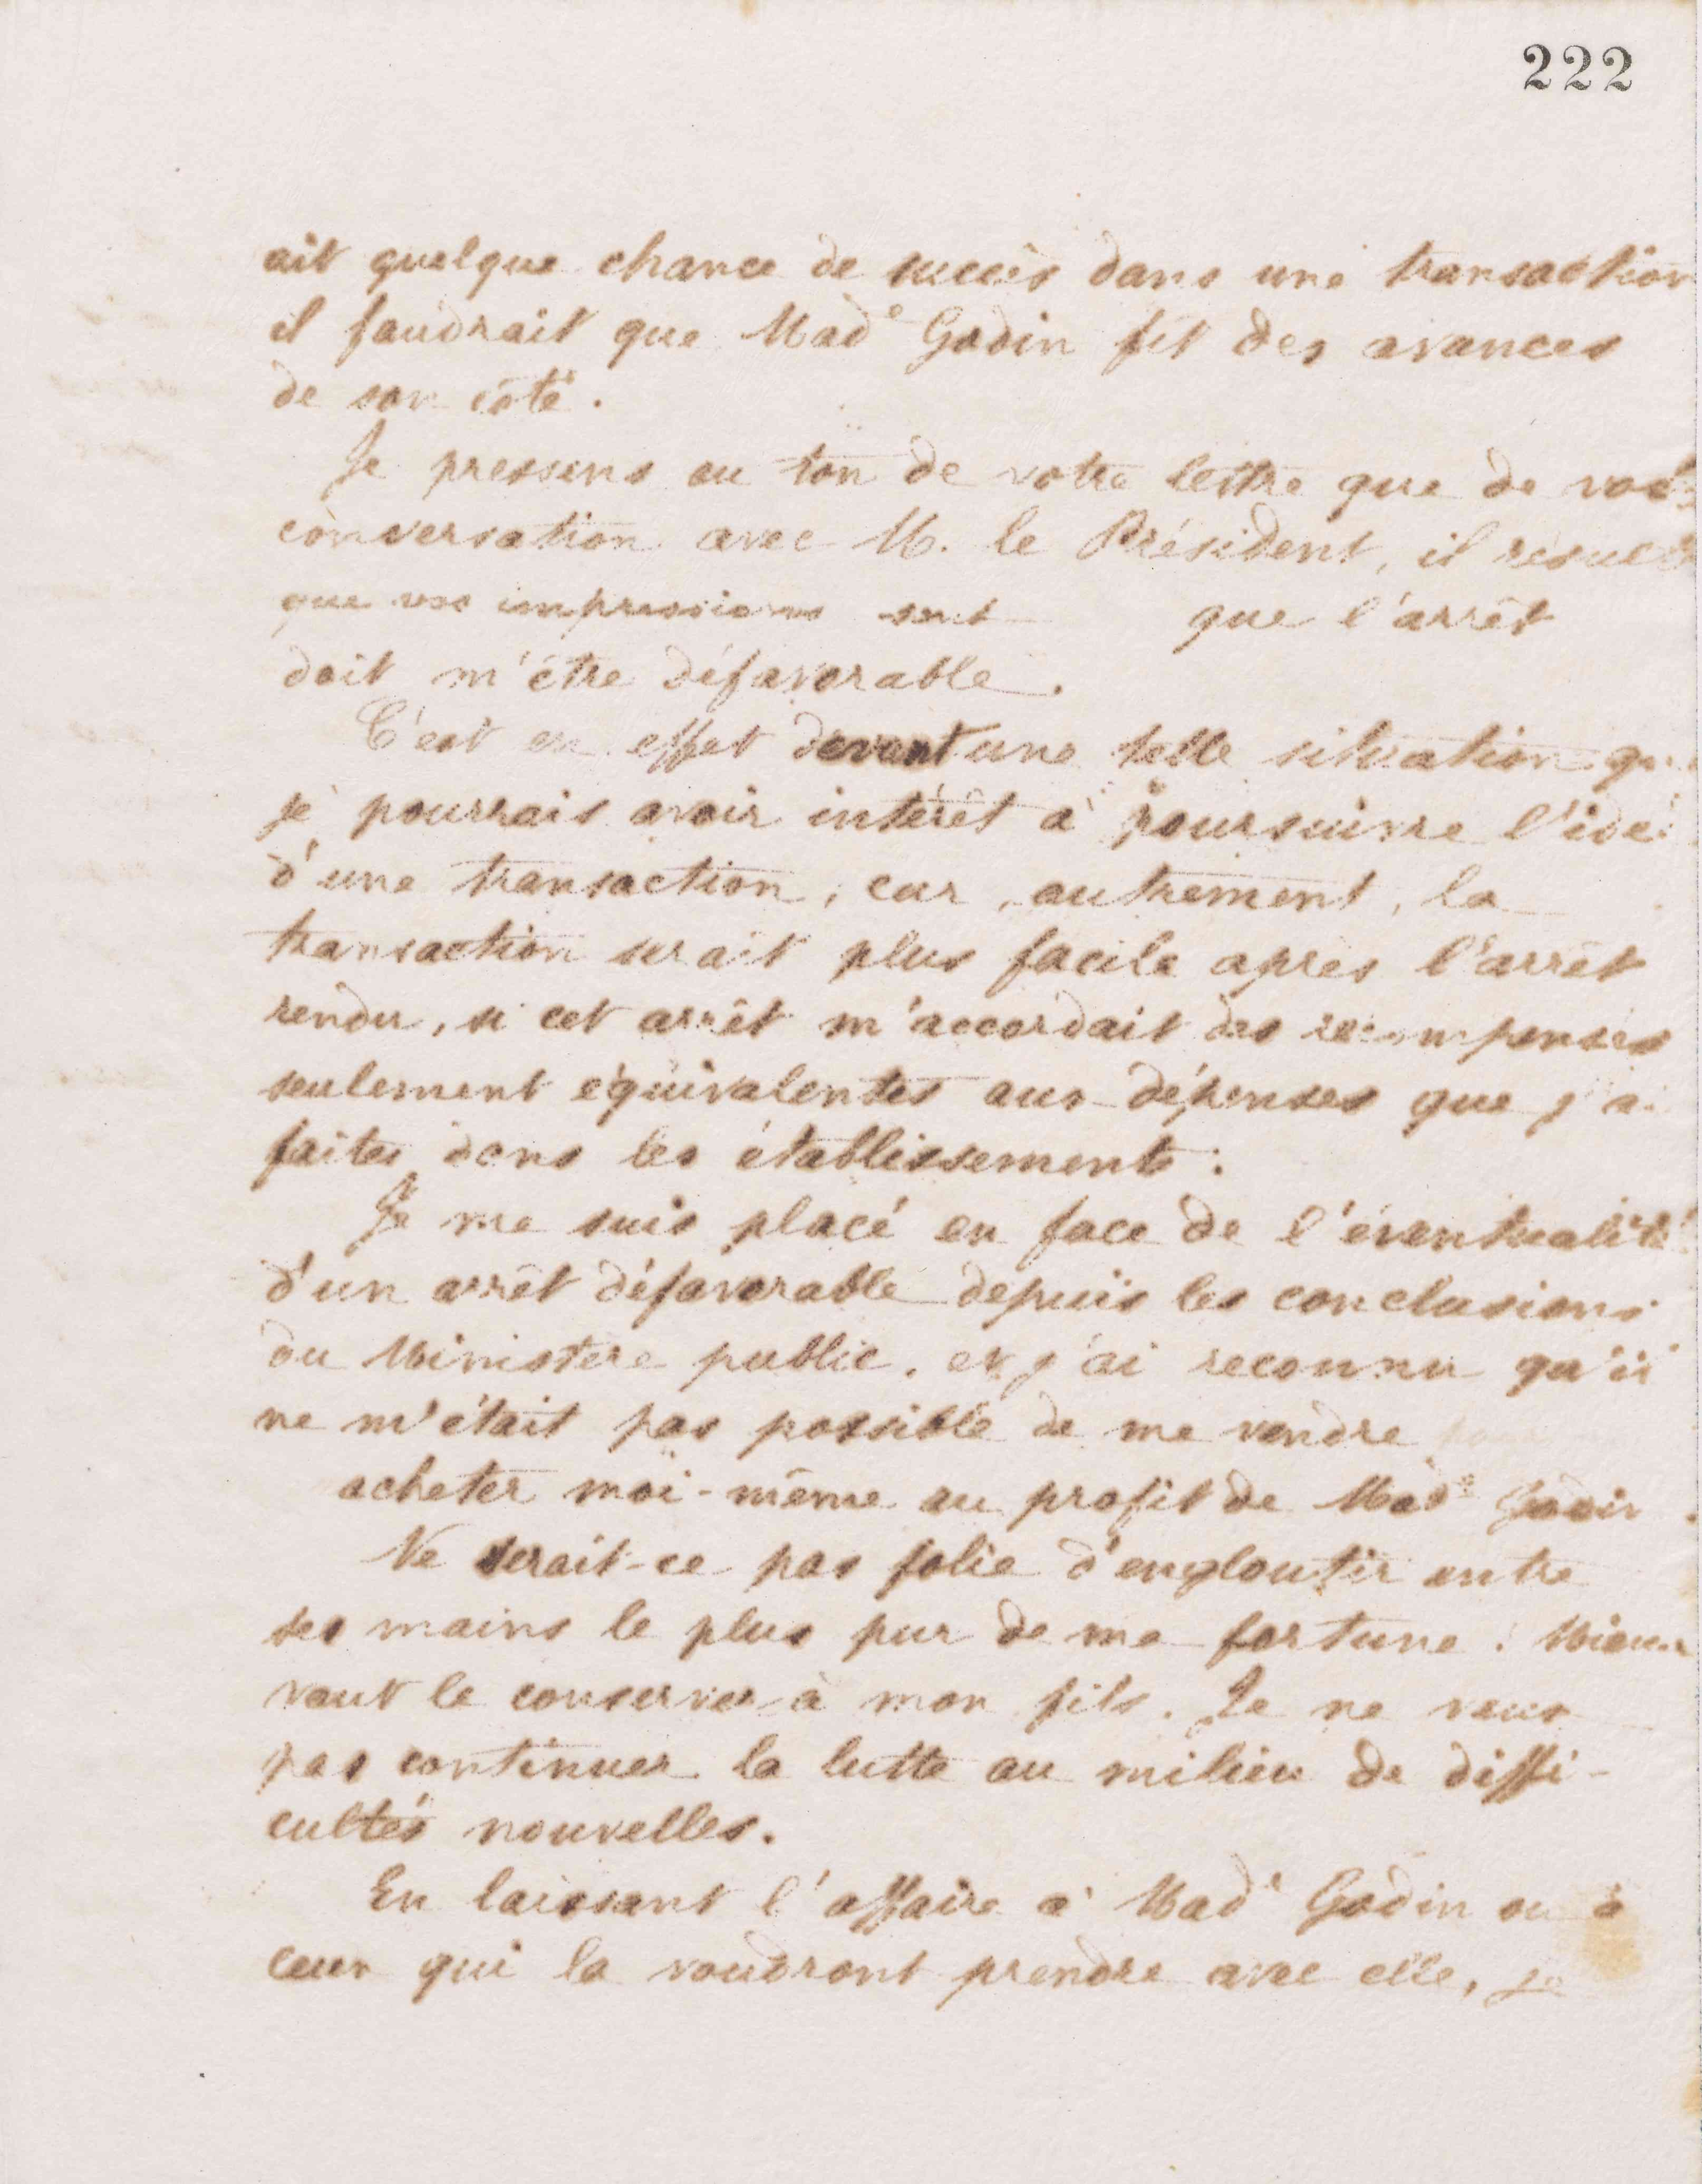 222
ait quelque chance de succès dans une transaction
il faudrait que Mad^e Godin fît des avances
de son côté.
Je pressens au ton de votre lettre que de
conversation avec M. le Président, il résulte
que vos impressions sont que l'arrêt
doit m'être défavorable.
C'est en effet devant une telle situation que
je pourrais avoir intérêt à poursuivre l'idée
d'une transaction, car, autrement, la
transaction serait plus facile après l'arrêt
rendu, si cet arrêt m'accordait des récompenses
seulement équivalentes aux dépenses que j'ai
faites dans les établissements.
Je me suis placé en face de l'éventualité
d'un arrêt défavorable depuis les conclusions
du Ministère public, et j'ai reconnu qu'il
ne m'était pas possible de me vendre
acheter moi-même au profit de Mad^e Godin.
Ne serait-ce pas folie d'engloutir entre
ses mains le plus pur de ma fortune. Mieux
vaut le conserver à mon fils. Je ne veux
pas continuer la lutte au milieu de diffi-
cultés nouvelles.
En laissant l'affaire à Mad^e Godin ou à
ceux qui la voudront prendre avec elle, je